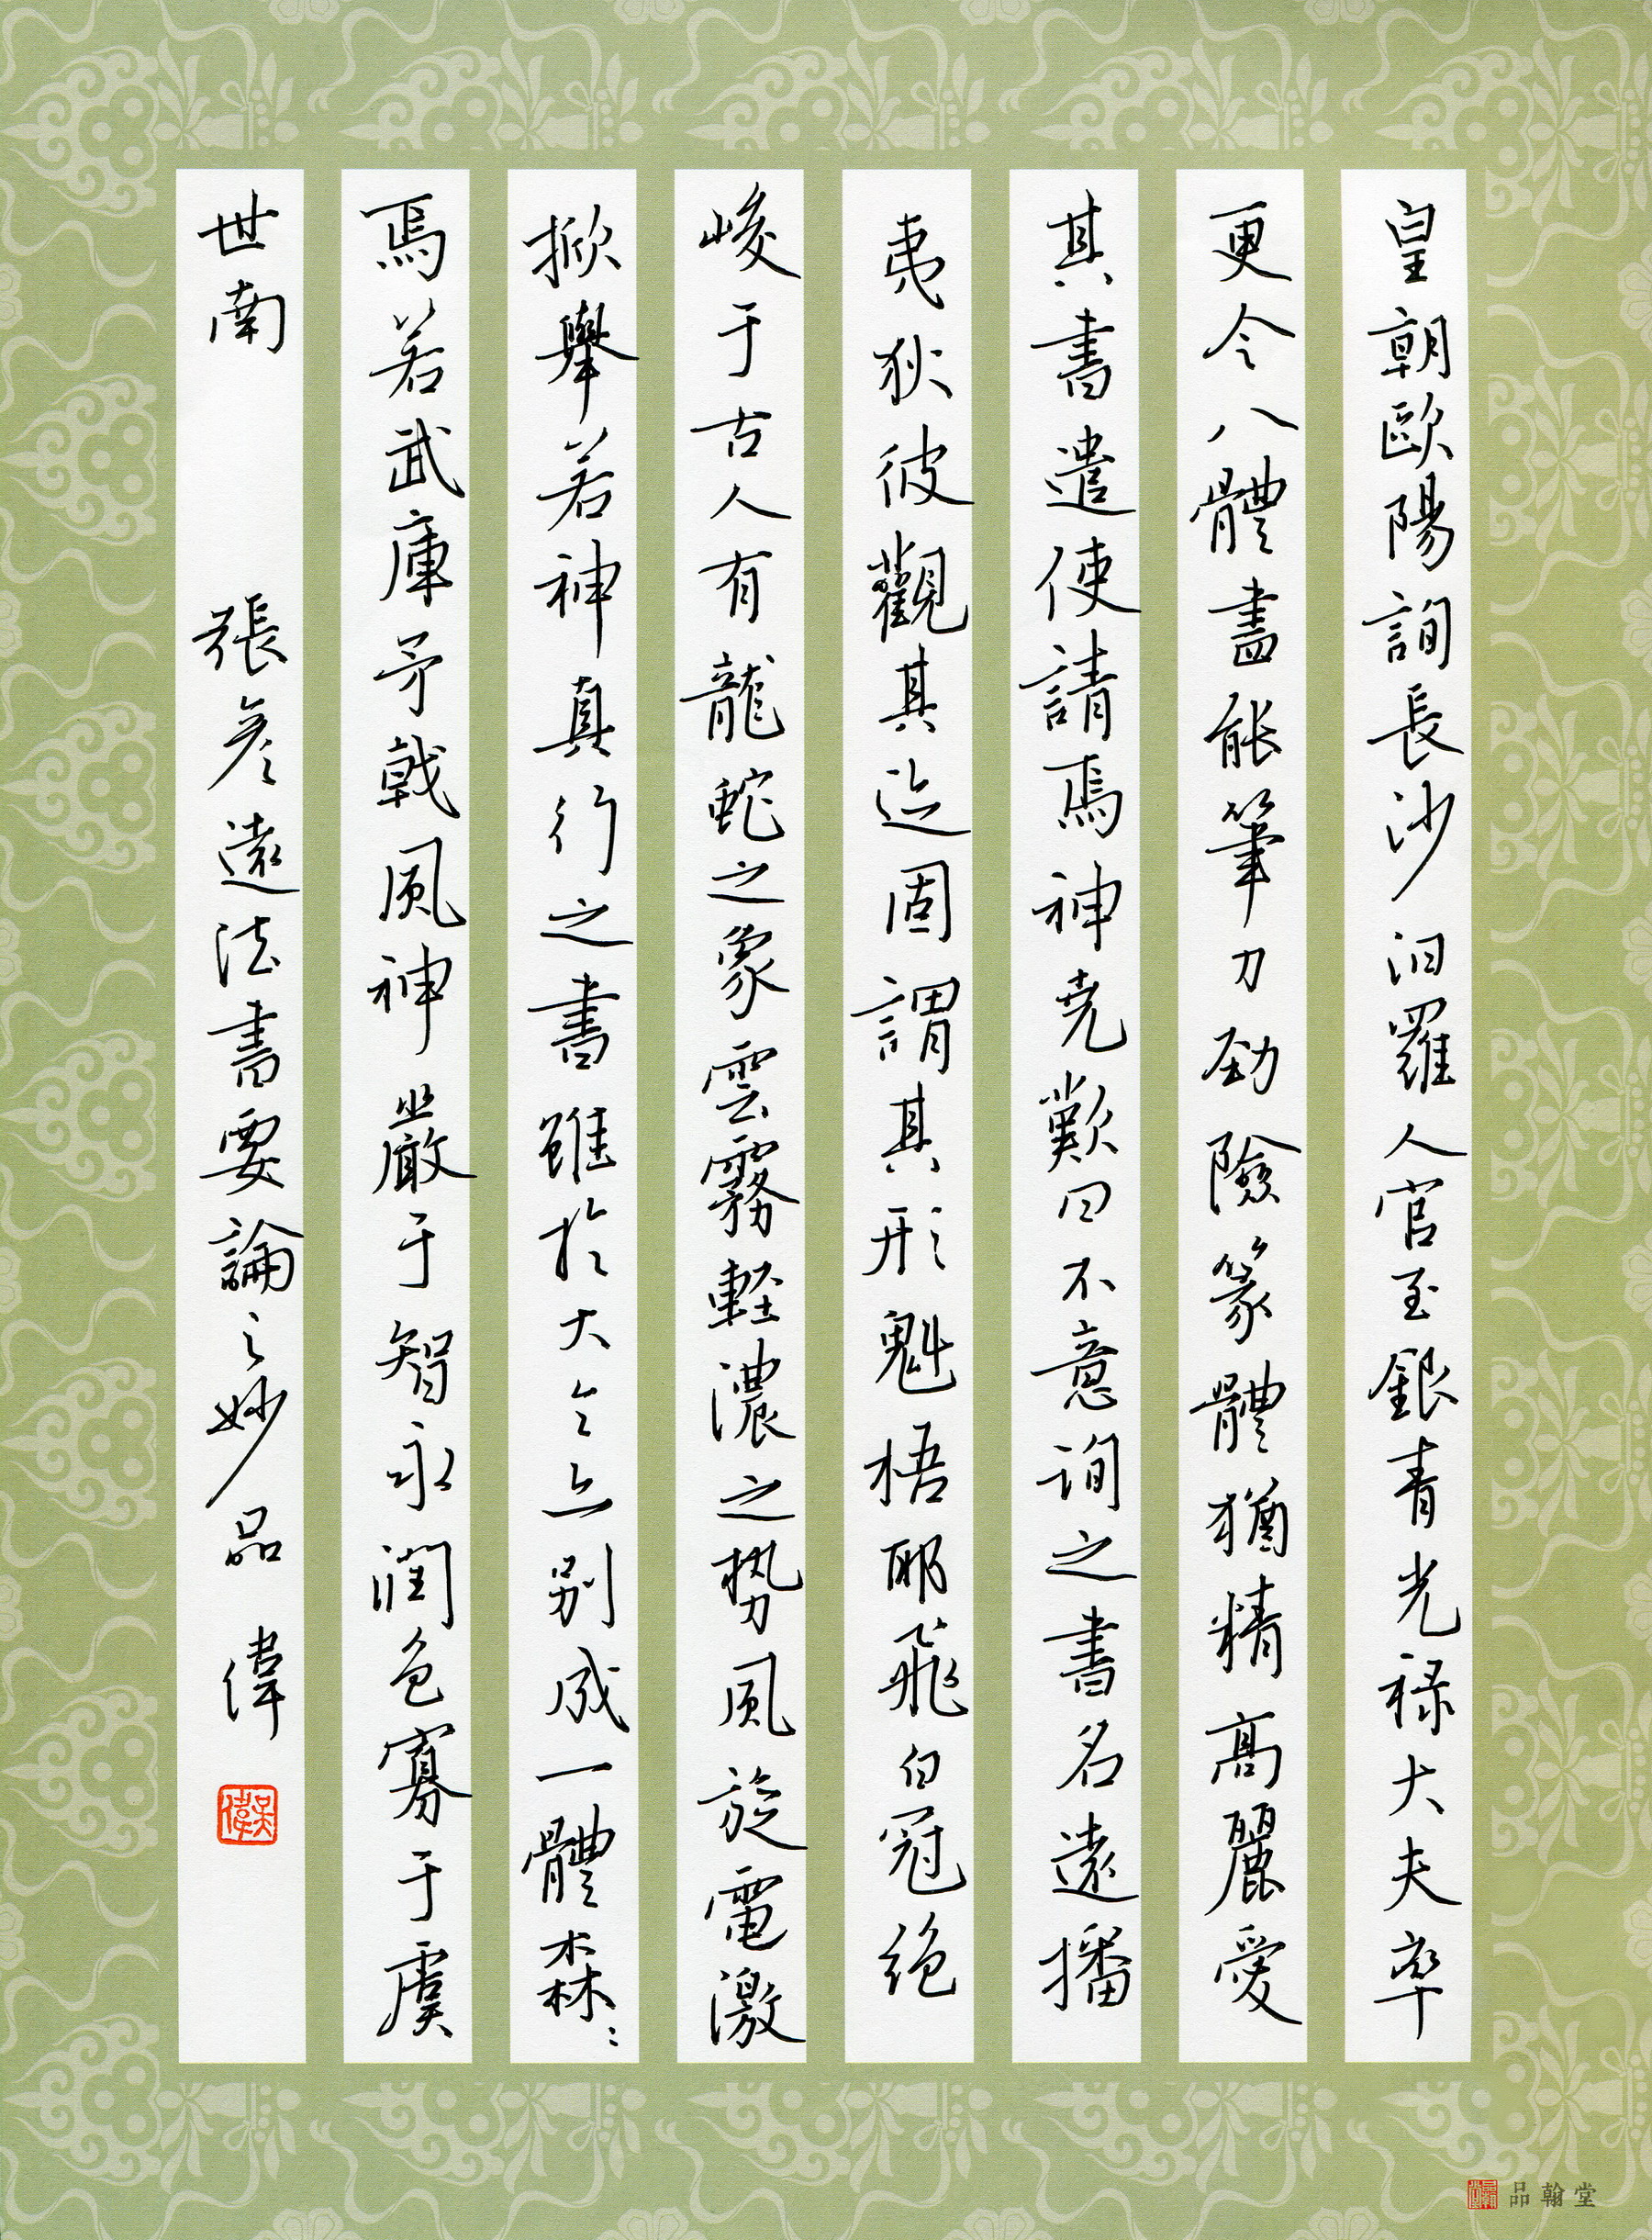 皇朝歐陽詢長沙汨羅人官至銀青光祿大夫率
更令八體盡能筆力勁險篆體猶精高麗愛
其書遣使請焉神堯歎曰不意詢之書名遠播
夷狄彼觀其迹固謂其形魁梧耶飛白冠絕
峻于古人有龍蛇之象雲霧輕濃之势風旋電激
掀舉若神真行之書雖於大令亦別成一體森〻
焉若武庫矛戟風神嚴于智永潤色寡于虞
世南 張彥遠法書要論之妙品 偉
吳偉
品翰堂